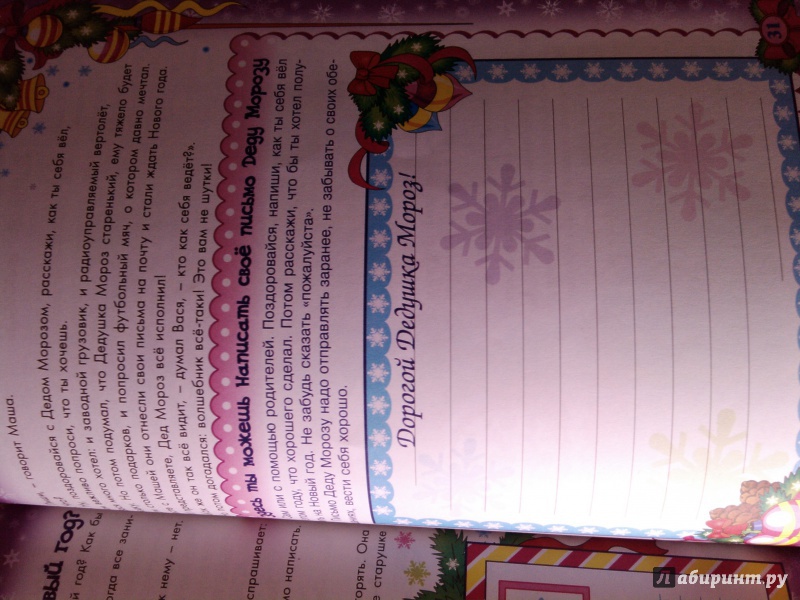 – говорит Маша.
поздоровайся с Дедом Морозом, расскажи, как ты себя вёл,
попроси, что ты хочешь.
хотел: и заводной грузовик, и радиоуправляемый вертолёт,
потом подумал, что Дедушка Мороз старенький, ему тяжело будет
подарков, и попросил футбольный мяч, о котором давно мечтал.
они отнесли свои письма на почту и стали ждать Нового года.
Дед Мороз всё исполнил!
же он так всё видит, – думал Вася, – кто как себя ведёт?».
догадался: волшебник всё-таки! Это вам не шутки!
ты можешь написать своё письмо Деду Морозу
или с помощью родителей. Поздоровайся, напиши, как ты себя вёл
году, что хорошего сделал. Потом расскажи, что бы ты хотел полу-
на Новый год. Не забудь сказать «пожалуйста».
Деду Морозу надо отправлять заранее, не забывать о своих обе-
вести себя хорошо.
Дорогой Дедушка Мороз!
31
год?
год? Как бы
все зани-
к нему – нет,
спрашивает:
написать.
Она
старушке
Лабиринт.ру